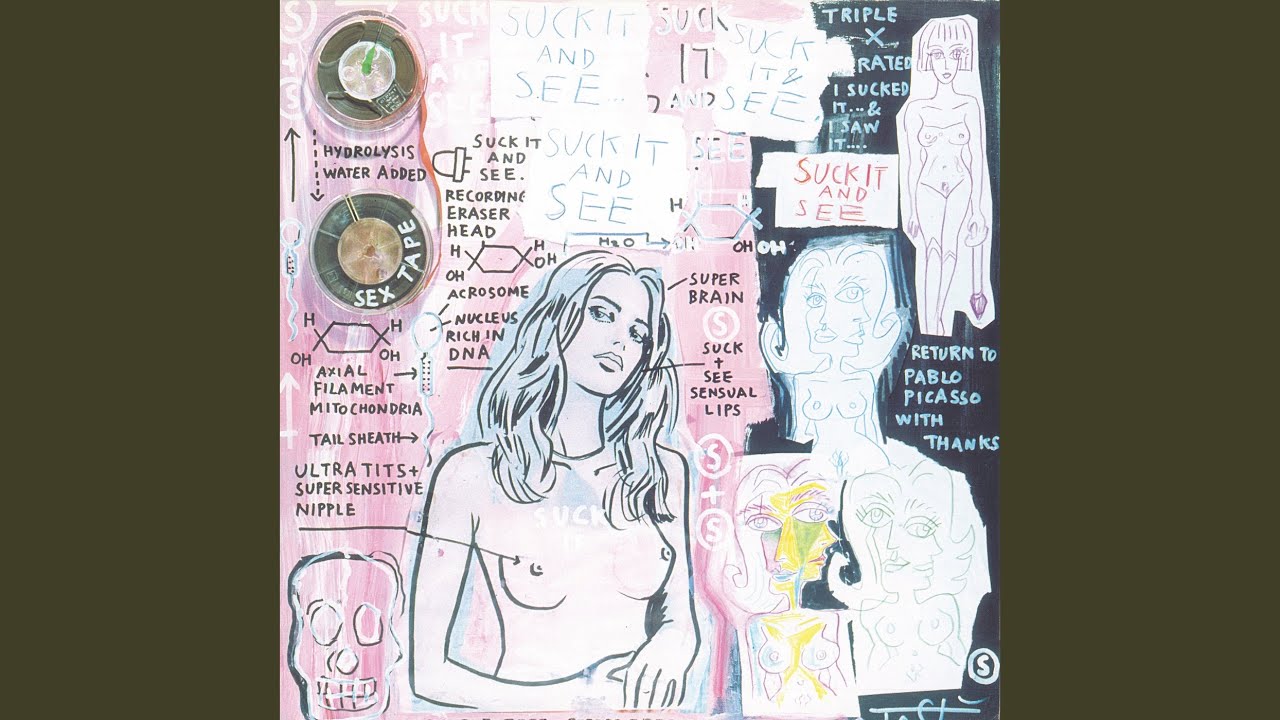 SUCK
IT
AND
SEE
SUCK IT
AND
SEE...
SUCK
IT
AND
SUCK
IT &
SEE
TRIPLE
X
RATED
I SUCKED
IT...&
I SAW
IT....
HYDROLYSIS
WATER ADDED
SUCK IT
AND
SEE.
SUCK IT
AND
SEE
SEE
SUCK IT
AND
SEE
RECORDING
ERASER
HEAD
SEX TAPE
H
H
OH
OH
H2O
H
OH
OH
ACROSOME
NUCLEUS
RICH IN
DNA
SUPER
BRAIN
S
H
H
OH
OH
AXIAL
FILAMENT
MITOCHONDRIA
TAIL SHEATH
SUCK
+
SEE
SENSUAL
LIPS
RETURN TO
PABLO
PICASSO
WITH
THANKS
ULTRA TITS+
SUPER SENSITIVE
NIPPLE
S
+
S
SUCK
IT
S
S
+
S